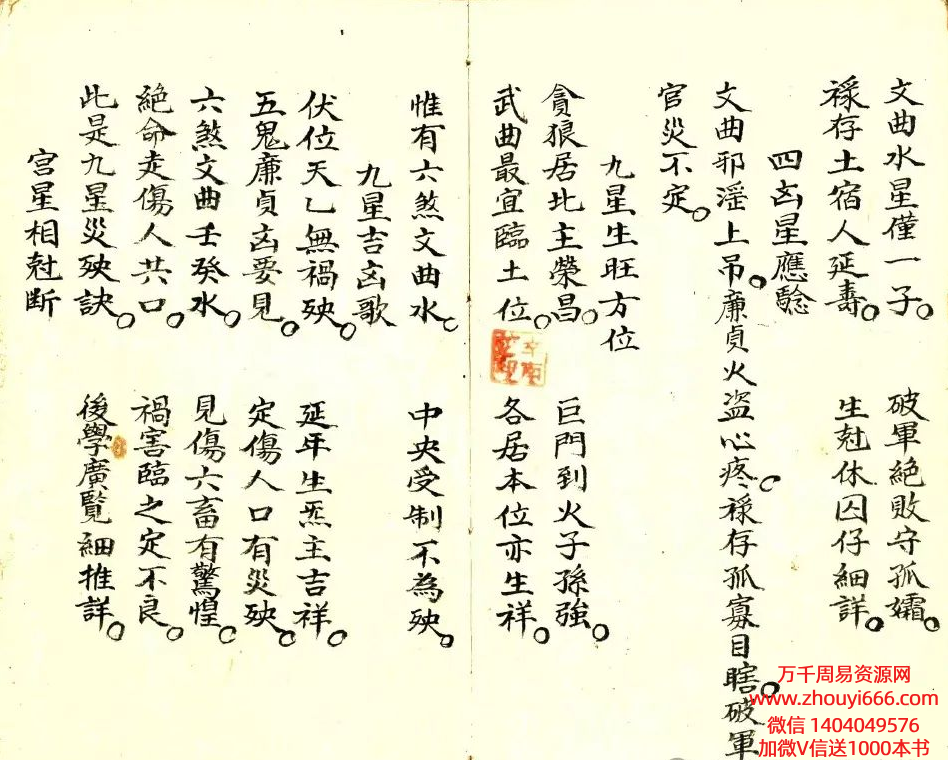 文曲水星僅一子。　破軍絕敗守孤孀。
祿存土宿人延壽。　生尅休囚仔細詳。
四凶星應驗
文曲邪淫上吊。廉貞火盜心疼。祿存孤寡目瞎。破軍
官災不定。
九星生旺方位
貪狼居北主榮昌。　巨門到火子孫強。
武曲最宜臨土位。　各居本位亦生祥。
惟有六煞文曲水。　中央受制不為殃。
九星吉凶歌
伏位天乙無禍殃。　延年生炁主吉祥。
五鬼廉貞凶要見。　定傷人口有災殃。
六煞文曲壬癸水。　見傷六畜有驚惶。
絕命走傷人共口。　禍害臨之定不良。
此是九星災殃訣。　後學廣覽細推詳。
宮星相尅斷
万千周易资源网
www.zhouyi666.com
微信 1404049576
加微V信送1000本书